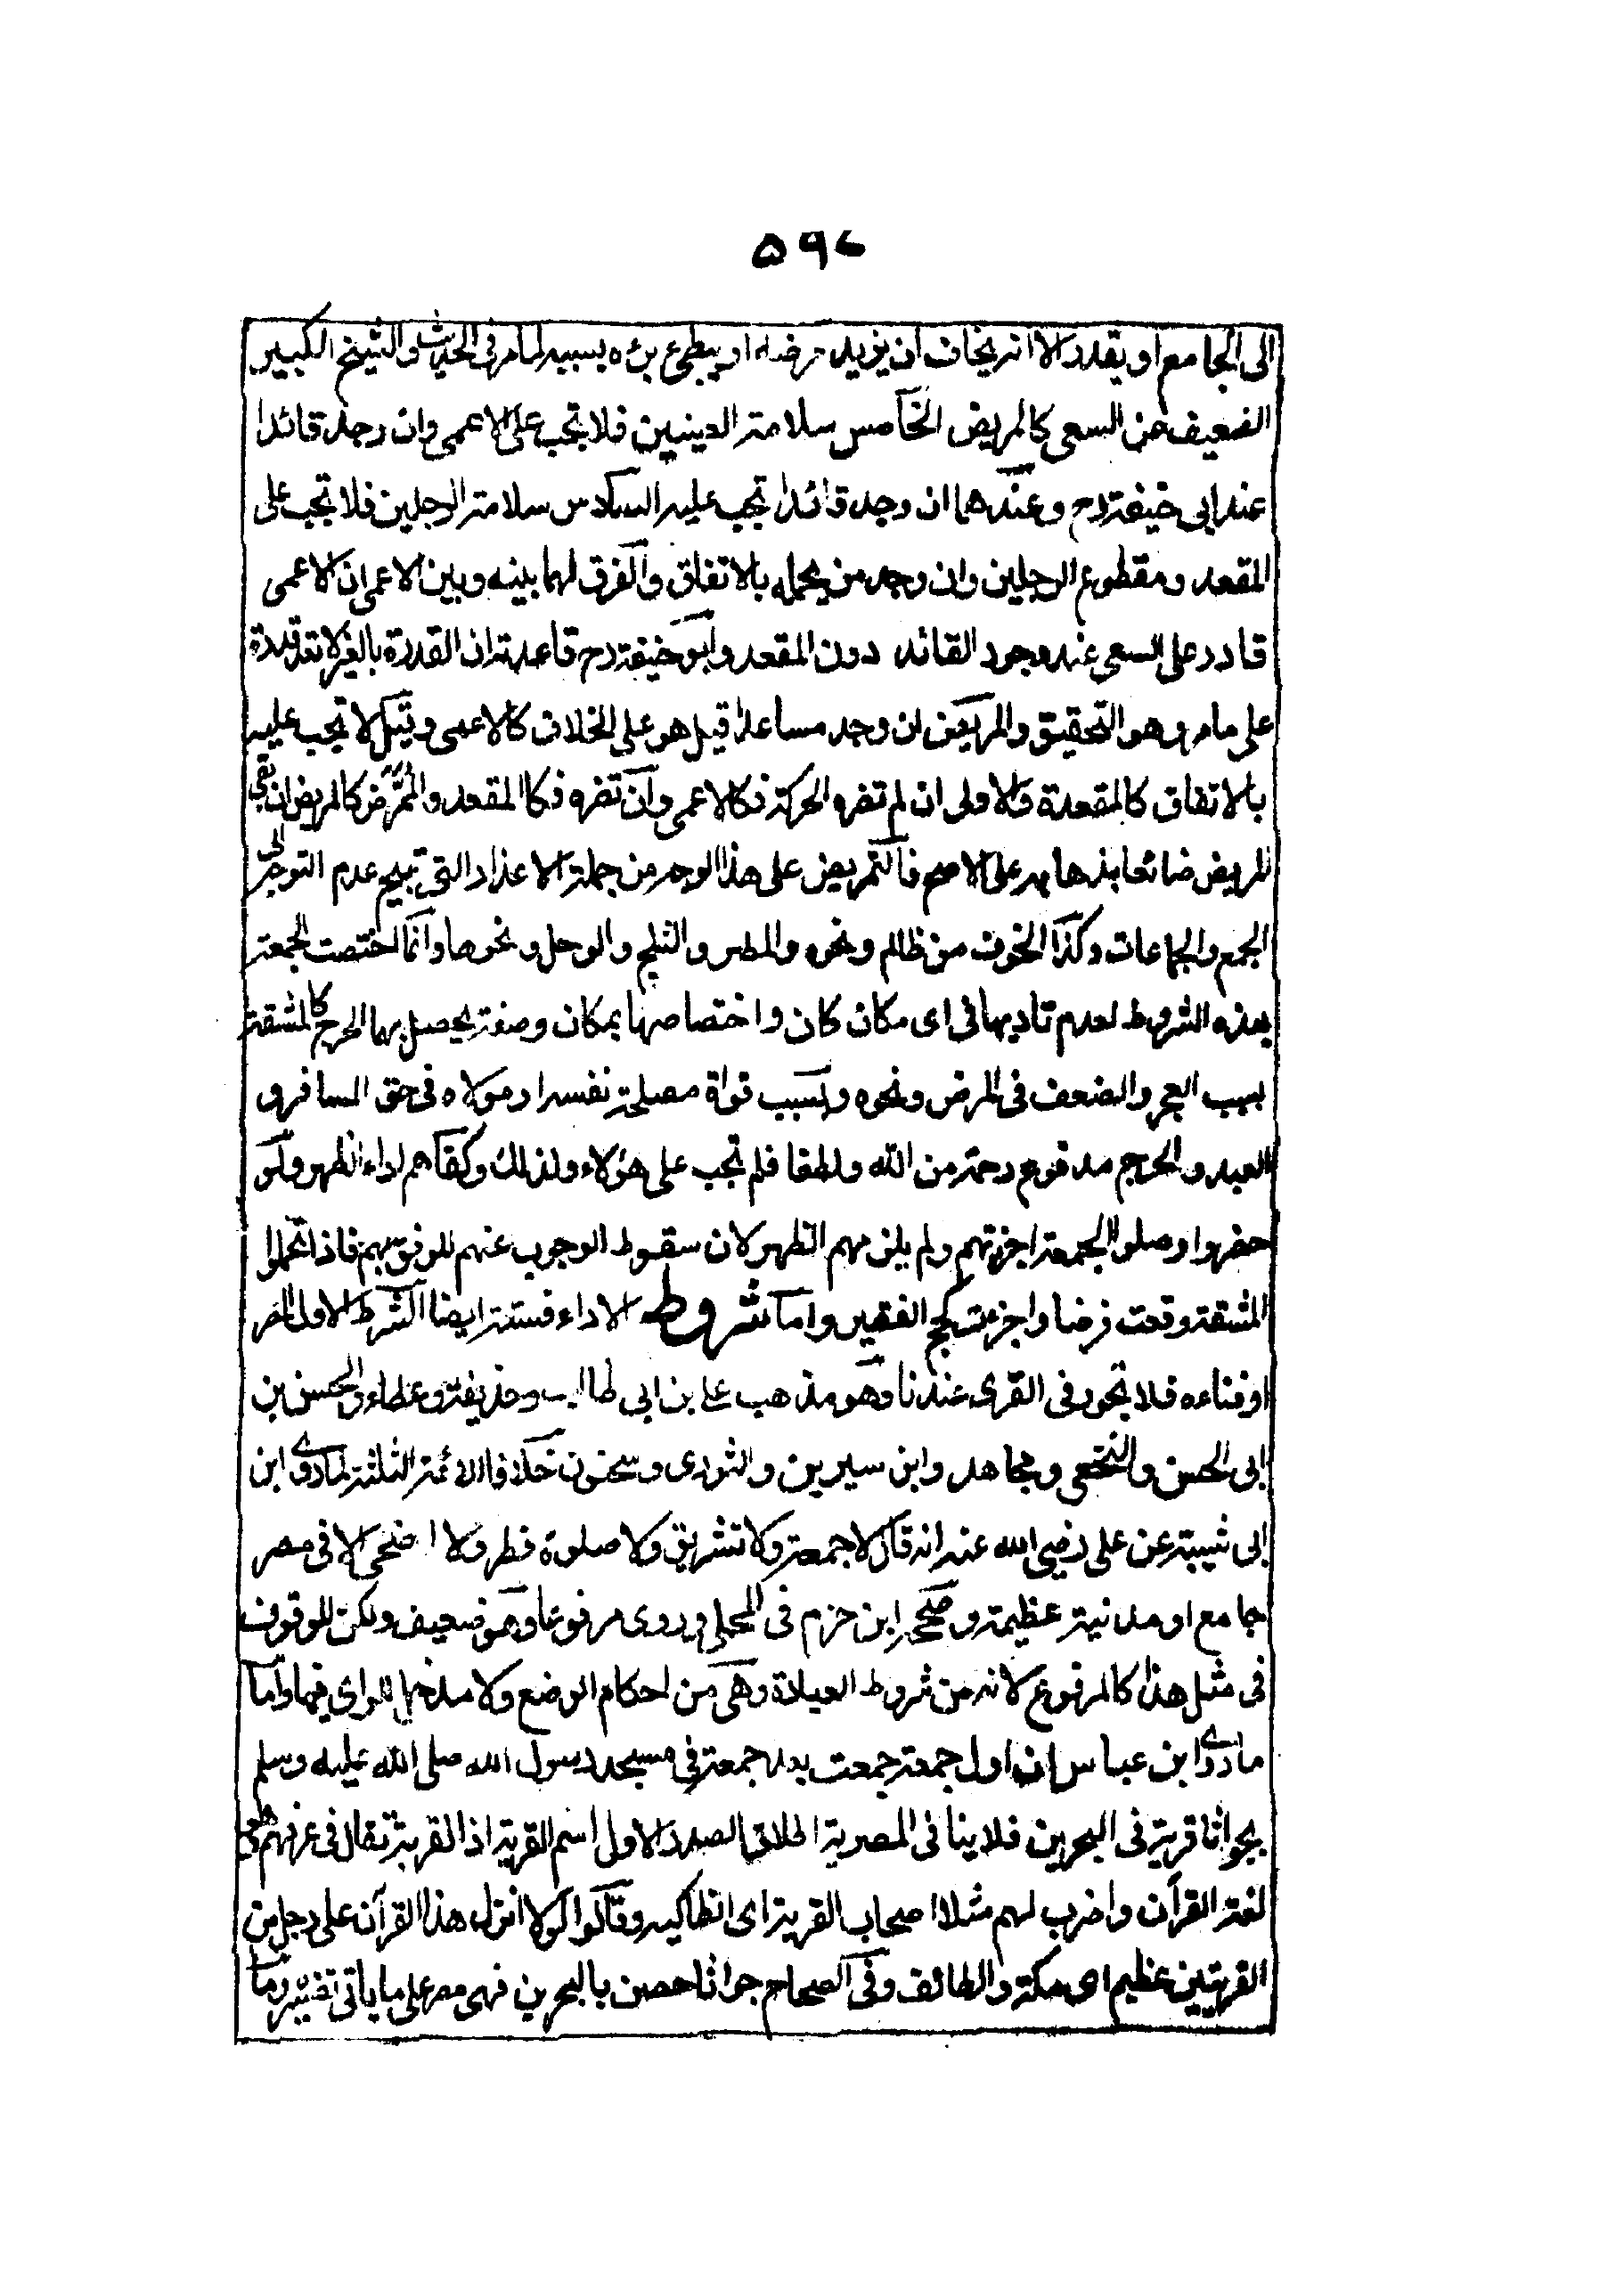 ۵۹۷
الى الجامع او يقدر الا انه يخاف ان يزيد مرضه او يبطئ برءه بسببه لما مر فى الحديث والشيخ الكبير
الضعيف عن السعى كالمريض الخامس سلامة العينين فلا تجب على الاعمى وان وجد قائدا
عند ابى حنيفة رح وعندهما ان وجد قائدا تجب عليه السادس سلامة الرجلين فلا تجب على
المقعد ومقطوع الرجلين وان وجد من يحمله بالاتفاق والفرق لهما بينه وبين الاعمى ان الاعمى
قادر على السعى عند وجود القائد دون المقعد وابو حنيفة رح قاعدته ان القدرة بالغير لا تعد قدرة
على ما مر وهو التحقيق والمريض ان وجد مساعدا قيل هو على الخلاف كالاعمى وقيل لا تجب عليه
بالاتفاق كالمقعدة فالاولى ان لم تضره الحركة فكالاعمى وان تضره فكا المقعد والممرض كالمريض ان بقى
المريض ضائعا بذهابه على الاصح فالتمريض على هذا الوجه من جملة الاعذار التى تبيح عدم التوجه الى
الجمع والجماعات وكذا الخوف من ظالم ونحوه والمطر والثلج والوحل ونحوها وانما اختصت الجمعة
بهذه الشروط لعدم تاديها فى اى مكان كان واختصاصها بمكان وصفة يحصل بهما الحرج كالمشقة
بسبب العجز والضعف فى المرض ونحوه وبسبب فواة مصلحة نفسه او مولاه فى حق المسافر و
العبد والحرج مدفوع رحمة من الله ولطفا فلم تجب على هؤلاء ولذلك وكفاهم اداء الظهر ولو
حضروا وصلوا الجمعة اجزتهم ولم يلزمهم الظهر لان سقوط الوجوب عنهم للرفق بهم فاذا تحملوا
المشقة وقعت فرضا واجزءت كحج الفقير واما شروط الاداء فستة ايضا الشرط الاول المصر
او فناءه فلا تجوز فى القرى عندنا وهو مذهب على بن ابى طالب وحذيفة وعطاء والحسن بن
ابى الحسن والنخعى ومجاهد وابن سيرين والثورى وسحنون خلافا للائمة الثلثة لما روى ابن
ابى شيبة عن على رضى الله عنه انه قال لا جمعة ولا تشريق ولا صلوة فطر ولا اضحى الا فى مصر
جامع او مدنية عظيمة وصححه ابن حزم فى المحلى وروى مرفوعا وهو ضعيف ولكن للموقوف
فى مثل هذا كالمرفوع لانه من شروط العبادة وهى من احكام الوضع ولا مدخل للراى فيها واما
ما روى ابن عباس ان اول جمعة جمعت بعد جمعة فى مسجد رسول الله صلى الله عليه وسلم
بجواثا قرية فى البحرين فلا ينافى المصرية اطلاق الصدر الاول اسم القرية اذ القرية تقال فى عرفهم وهى
لغة القرآن واضرب لهم مثلا اصحاب القرية اى انطاكيه وقالوا لولا انزل هذا القرآن على رجل من
القريتين عظيم اى مكة والطائف وفى الصحاح جواثا حصن بالبحرين فهى مصر على ما ياتى تفسيره وما